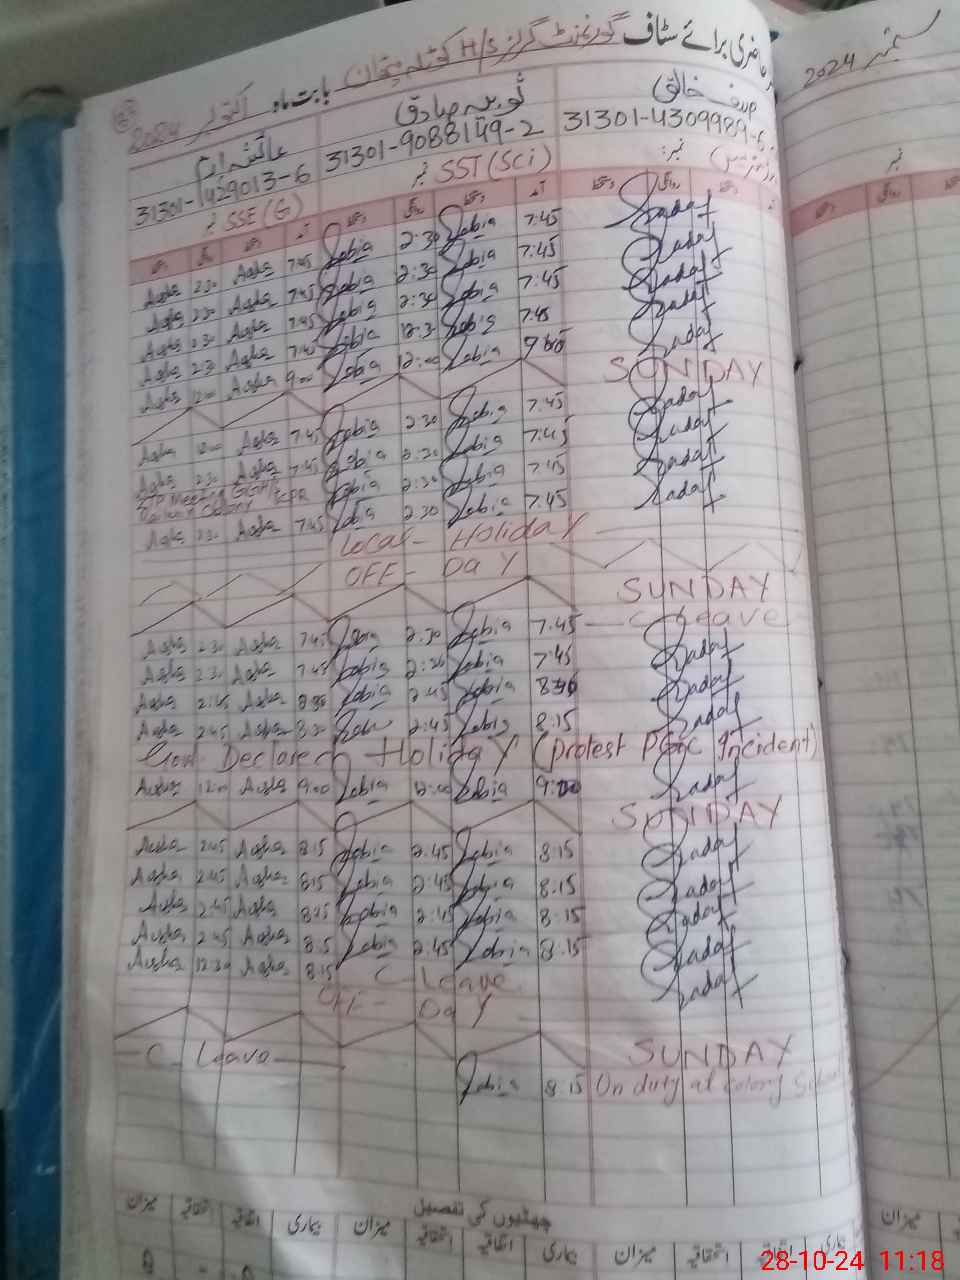 حاضری برائے سٹاف گورنمنٹ گرلز H/S کوٹلہ پٹھان بابت ماہ اکتوبر 2024
ستمبر 2024
صدف خالق
31301-4309989-6
ثوبیہ صادق
31301-9088149-2
31301-1429013-6
نمبر
SST (Sci) نمبر
SSE (G) نمبر
نمبر
Aasha 2:30 Aasha 7:45 Sobia 2:30 Sobia 7:45 Sadaf
Aasha 2:30 Aasha 7:45 Sobia 2:30 Sobia 7:45 Sadaf
Aasha 2:30 Aasha 7:45 Sobia 2:30 Sobia 7:45 Sadaf
Aasha 2:30 Aasha 7:45 Sobia 12:30 Sobia 7:45 Sadaf
Aasha 12:00 Aasha 9:00 Sobia 12:00 Sobia Sadaf
SUNDAY
Aasha Aasha 7:45 Sobia 2:30 Sobia 7:45 Sadaf
Aasha 2:30 Aasha 7:45 Sobia 2:30 Sobia 7:45 Sadaf
Meeting Colony Sobia 2:30 Sobia 7:45 Sadaf
Aasha 2:30 Aasha 7:45 Sobia 2:30 Sobia 7:45 Sadaf
Local - Holiday
OFF - Day
SUNDAY
Aasha 2:30 Aasha 7:45 Sobia 2:30 Sobia 7:45 C Leave
Aasha 2:30 Aasha 7:45 Sobia 2:30 Sobia 7:45 Sadaf
Aasha 2:45 Aasha 8:30 Sobia 2:45 Sobia Sadaf
Aasha 2:45 Aasha 8:30 Sobia 2:45 Sobia 8:15 Sadaf
Govt Declared Holiday (Protest PGC Incident)
Aasha 12:00 Aasha 9:00 Sobia 12:00 Sobia 9:00 Sadaf
SUNDAY
Aasha 2:45 Aasha 8:15 Sobia 2:45 Sobia 8:15 Sadaf
Aasha 2:45 Aasha 8:15 Sobia 2:45 Sobia 8:15 Sadaf
Aasha 2:45 Aasha 8:15 Sobia 2:45 Sobia 8:15 Sadaf
Aasha 2:45 Aasha 8:15 Sobia 2:45 Sobia 8:15 Sadaf
Aasha 12:30 Aasha 8:15 C - Leave Sadaf
Off - Day
SUNDAY
C - Leave Sobia 8:15 On duty at Colony School
چھٹیوں کی تفصیل
میزان اتفاقیہ بیماری میزان اتفاقیہ بیماری میزان اتفاقیہ بیماری
میزان
28-10-24 11:18